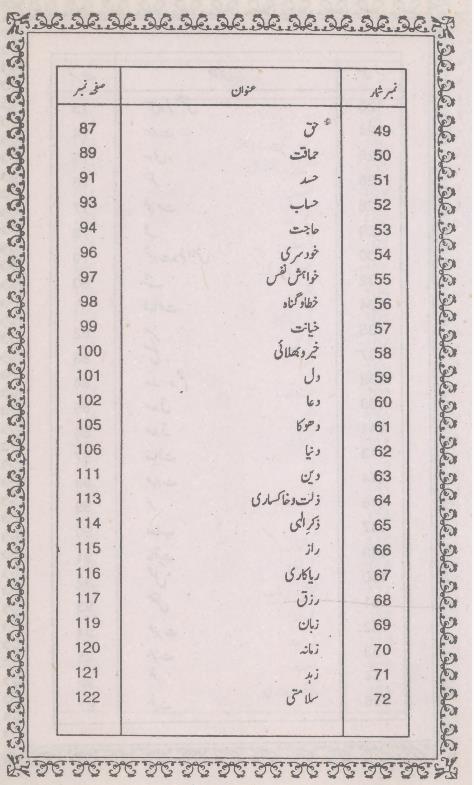 نمبر شمار عنوان صفحہ نمبر
49 حق 87
50 حماقت 89
51 حسد 91
52 حساب 93
53 حاجت 94
54 خود سری 96
55 خواہش نفس 97
56 خطا و گناہ 98
57 خیانت 99
58 خیر و بھلائی 100
59 دل 101
60 دعا 102
61 دھوکا 105
62 دنیا 106
63 دین 111
64 ذلت و خاکساری 113
65 ذکر الٰہی 114
66 راز 115
67 ریاکاری 116
68 رزق 117
69 زبان 119
70 زمانہ 120
71 زہد 121
72 سلامتی 122